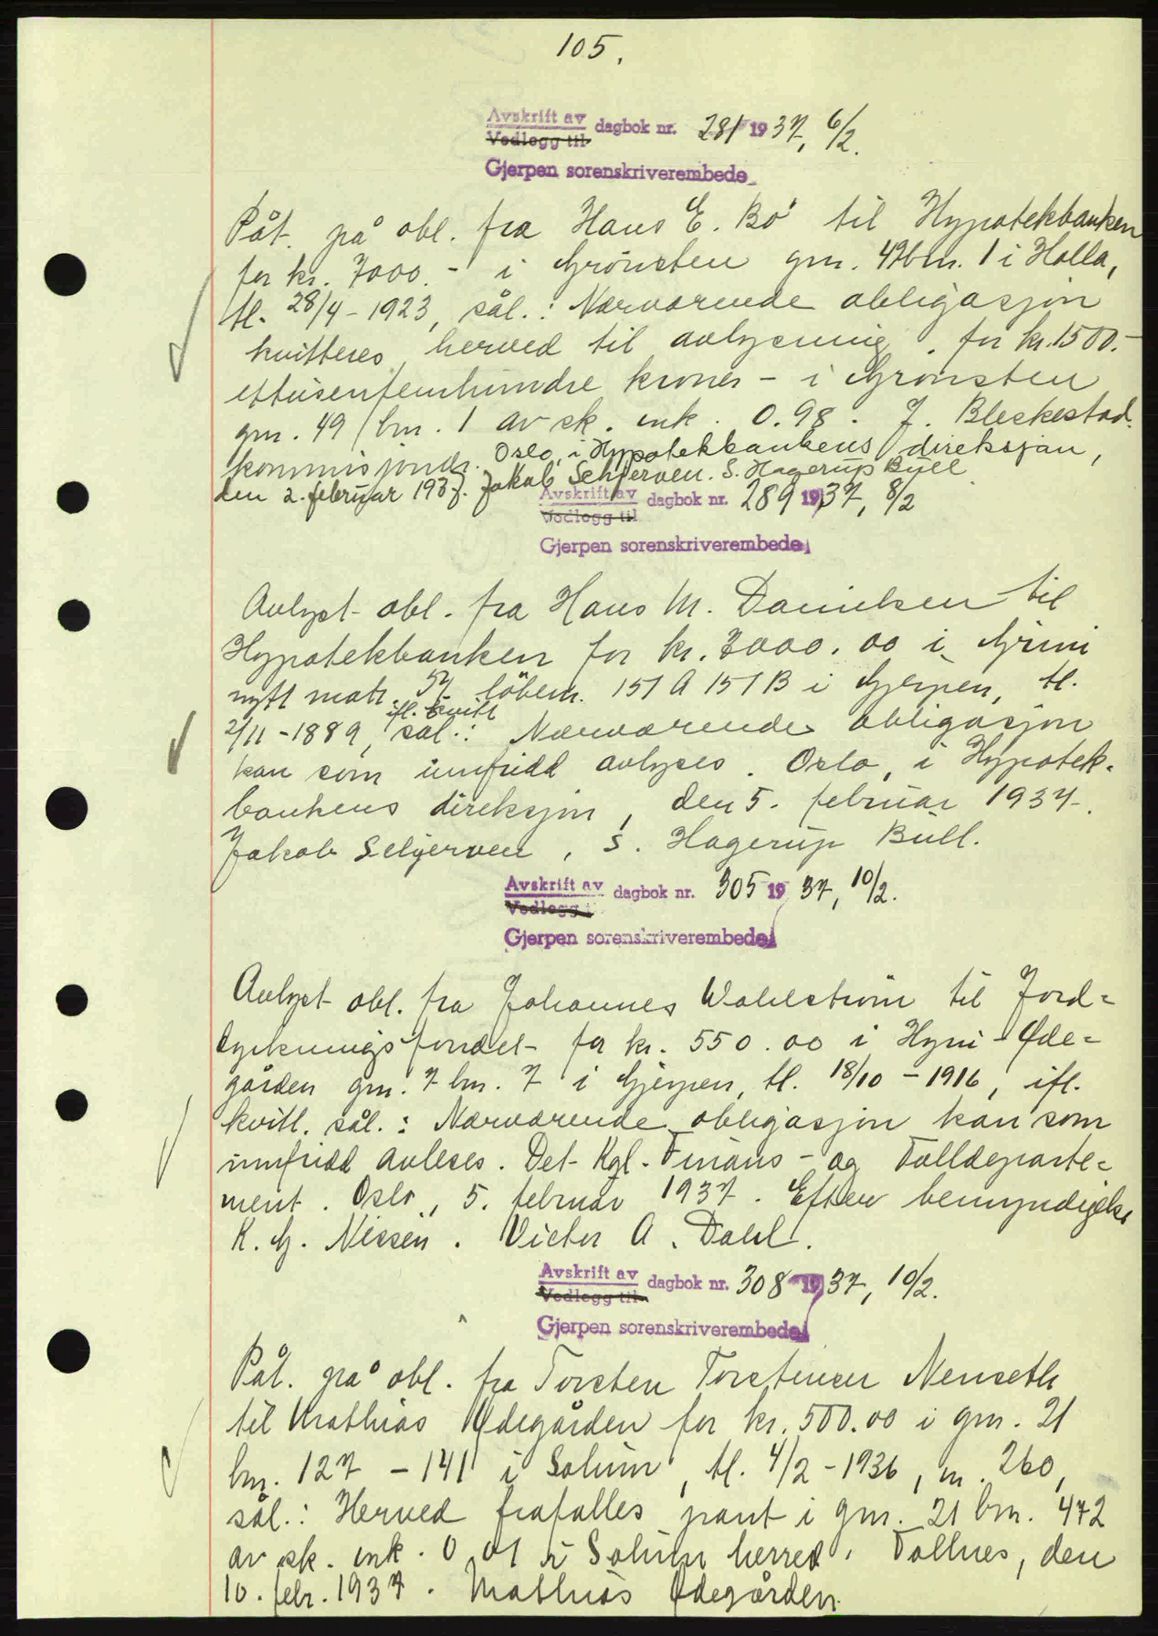 105.
Avskrift av
Vedlegg til dagbok nr. 281 1937, 6/2.
Gjerpen sorenskriverembede
Påt. på obl. fra Hans E. Bö til Hypotekbanken
for kr. 7000.- i Grönsten gnr. 49 bnr. 1 i Holla,
tl. 28/4-1923, sål.: Nærværende obligasjon
kvitteres herved til avlysning for kr. 1500.-
ettusenfemhundre kroner - i Grönsten
gnr. 49 bnr. 1 av sk. mk. 0.98. J. Bleskestad
kommisjonær. Oslo, i Hypotekbankens direksjon,
den 2. februar 1937. Jakob Schjerven. S. Hagerup Bull
Avskrift av
Vedlegg til dagbok nr. 289 1937, 8/2
Gjerpen sorenskriverembede
Avlyst obl. fra Hans M. Danielsen til
Hypotekbanken for kr. 3000.00 i Grini
nytt matr. 54 löbenr. 151A 151B i Gjerpen, tl.
2/11-1889, ifl. kvitt sål.: Nærværende obligasjon
kan som innfridd avlyses. Oslo, i Hypotek-
bankens direksjon, den 5. februar 1937.
Jakob Schjerven, S. Hagerup Bull.
Avskrift av
Vedlegg dagbok nr. 305 1937, 10/2.
Gjerpen sorenskriverembede
Avlyst obl. fra Johannes Wahlström til Jord=
dyrkningsfondet for kr. 550.00 i Hyni-Øde=
gården gnr. 7 bnr. 7 i Gjerpen, tl. 18/10-1916, ifl.
kvitt. sål.: Nærværende obligasjon kan som
innfridd avleses. Det Kgl. Finans- og Tolldeparte=
ment. Oslo, 5. februar 1937. Efter bemyndigelse
K. G. Nissen. Victor A. Dahl.
Avskrift av
Vedlegg til dagbok nr. 308 1937, 10/2.
Gjerpen sorenskriverembede
Påt. på obl. fra Torsten Torstensen Nenseth
til Mathias Ødegården for kr. 500.00 i gnr. 21
bnr. 127 - 141 i Solum, tl. 4/2-1936, nr. 260,
sål.: Herved frafalles pant i gnr. 21 bnr. 472
av sk. mk. 0.01 i Solum herred. Tollnes, den
10. febr. 1937. Mathias Ødegården.